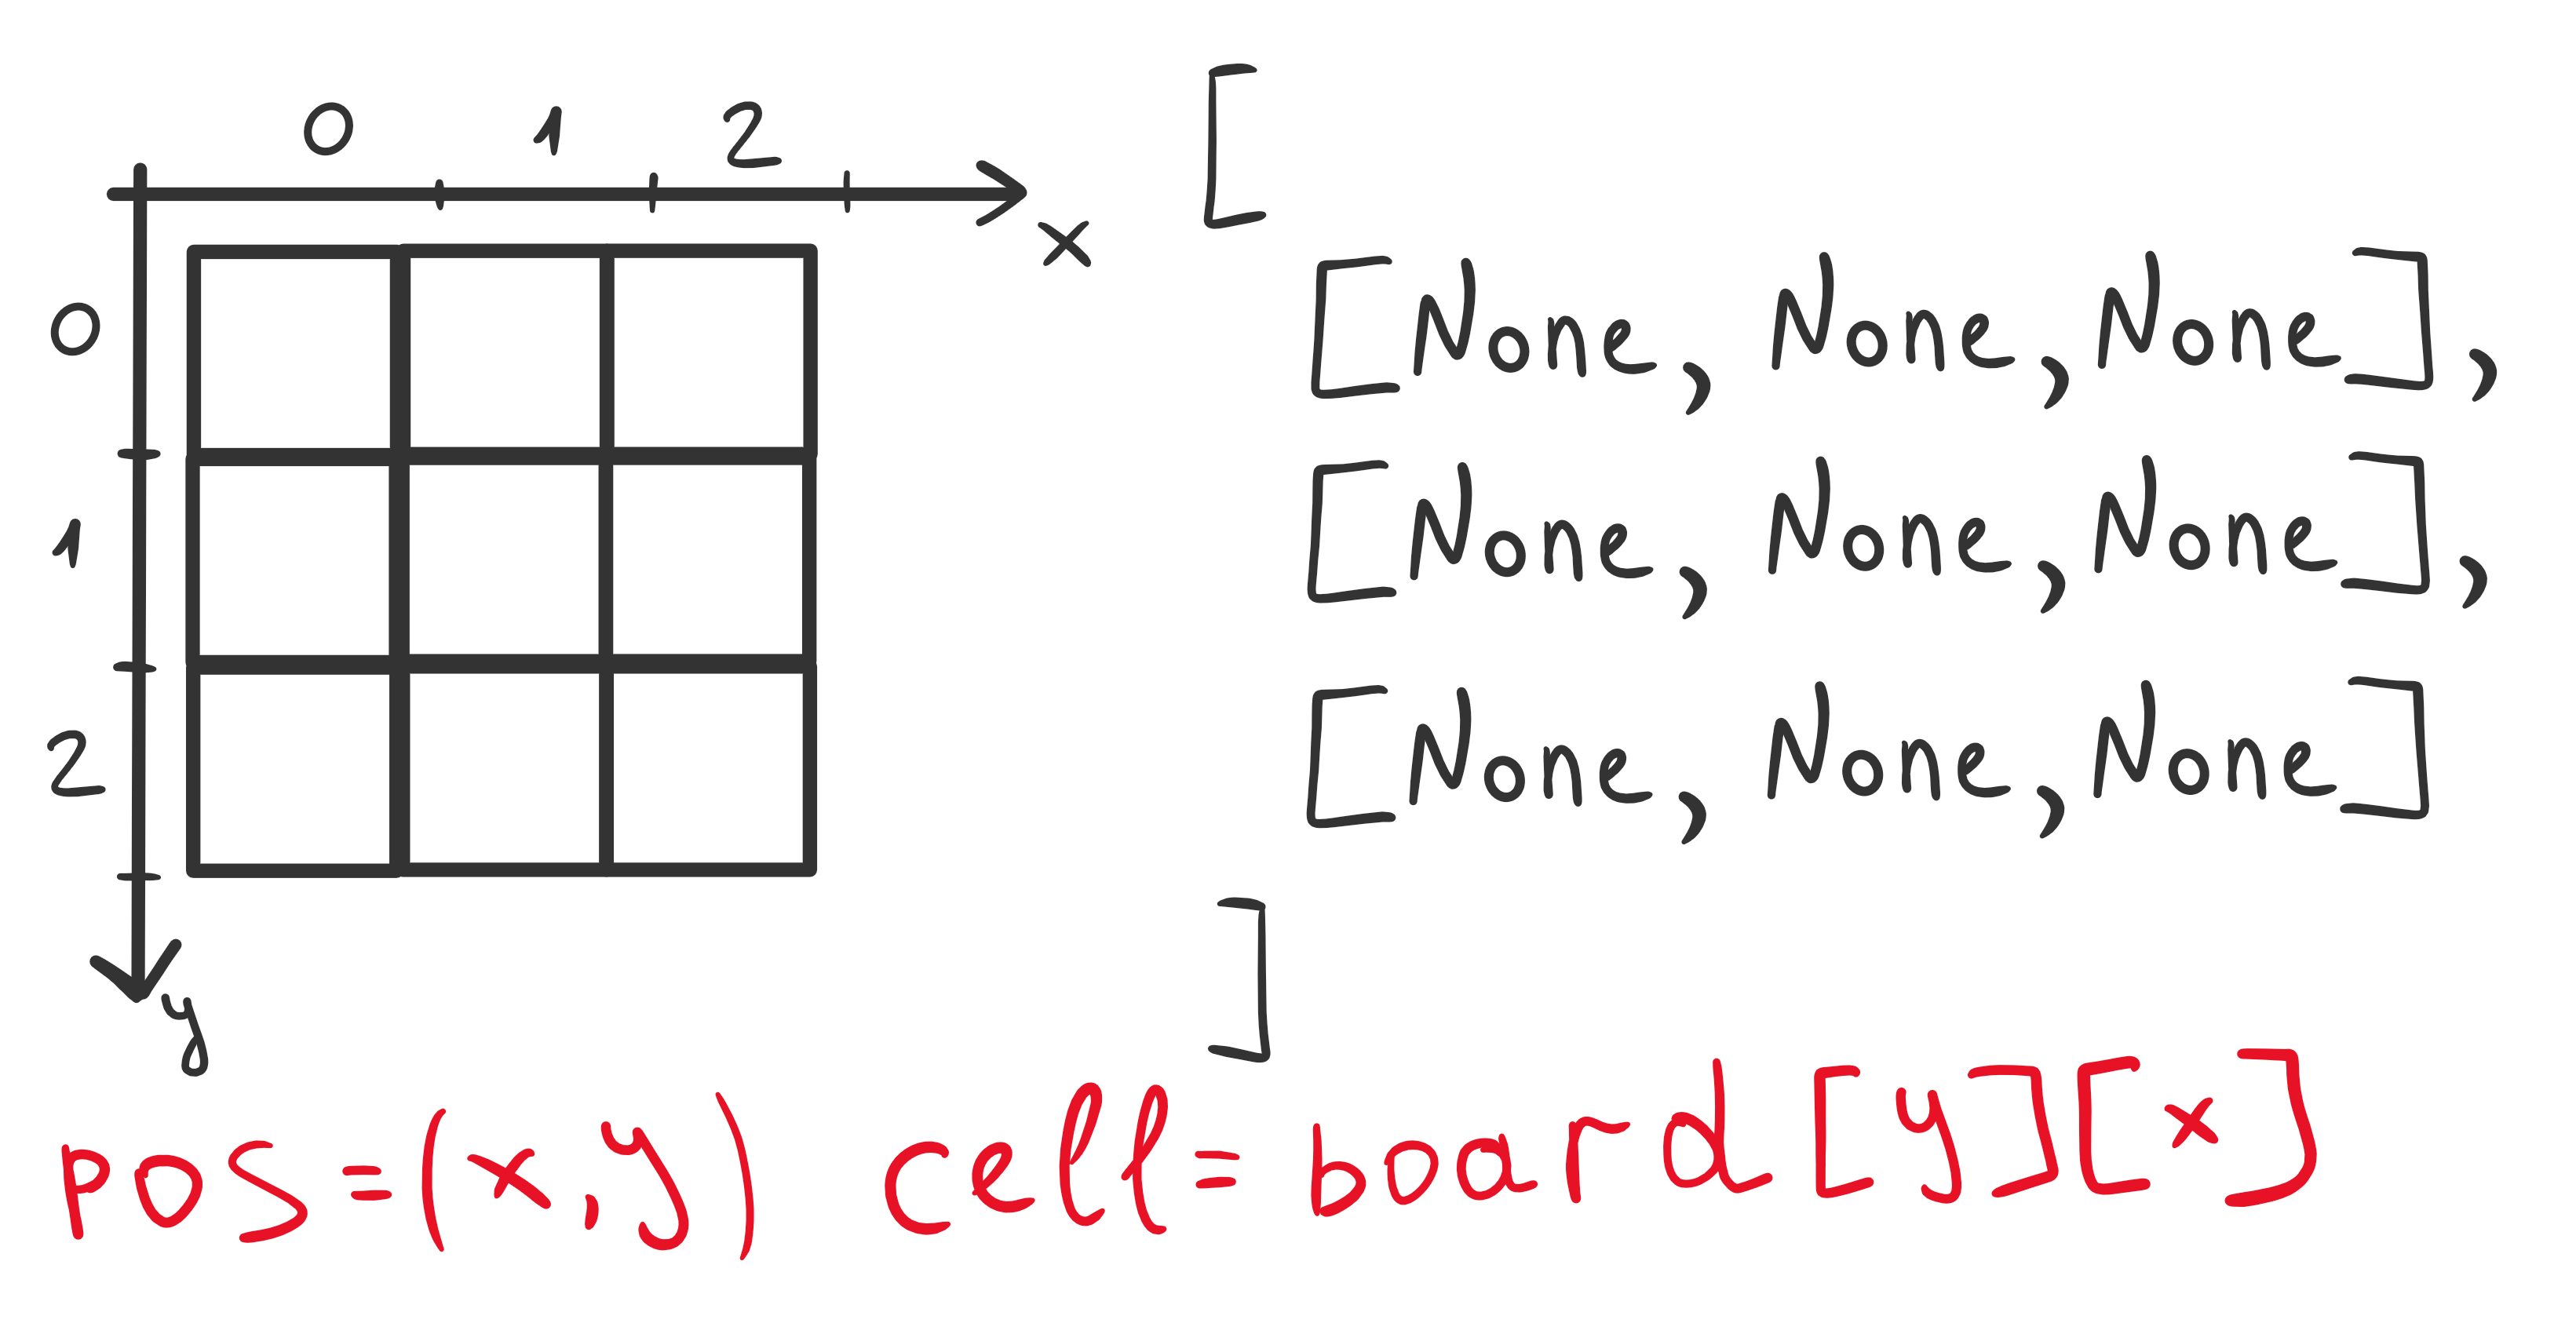 0 1 2
x
0
1
2
y
[
[None, None, None],
[None, None, None],
[None, None, None]
]
pos=(x,y) cell=board[y][x]